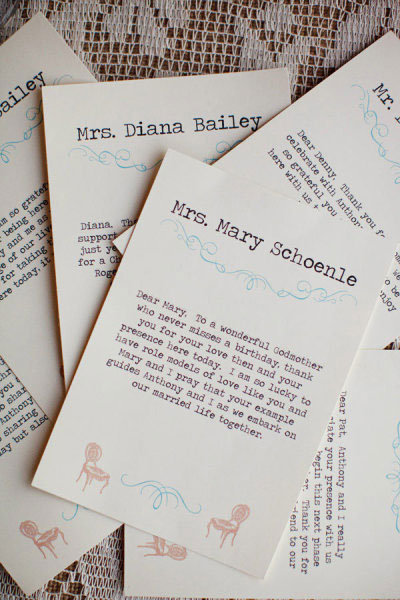 Bailey
am so grateful
being here
and me as
of our lives
for taking
here today, it
sharing
Anthony
is sharing
day but also
Mrs. Diana Bailey
Diana, The
support
just y
for a Ch
Roge
Mr.
Dear Denny, Thank you for
celebrate with Anthony
so grateful you
here with us t
enjoy
Mrs. Mary Schoenle
Dear Mary, To a wonderful Godmother
who never misses a birthday, thank
you for your love then and your
presence here today. I am so lucky to
have role models of love like you and
Mary and I pray that your example
guides Anthony and I as we embark on
our married life together.
Dear Pat, Anthony and I really
iate your presence with
begin this next phase
er. Thank you for
end to our